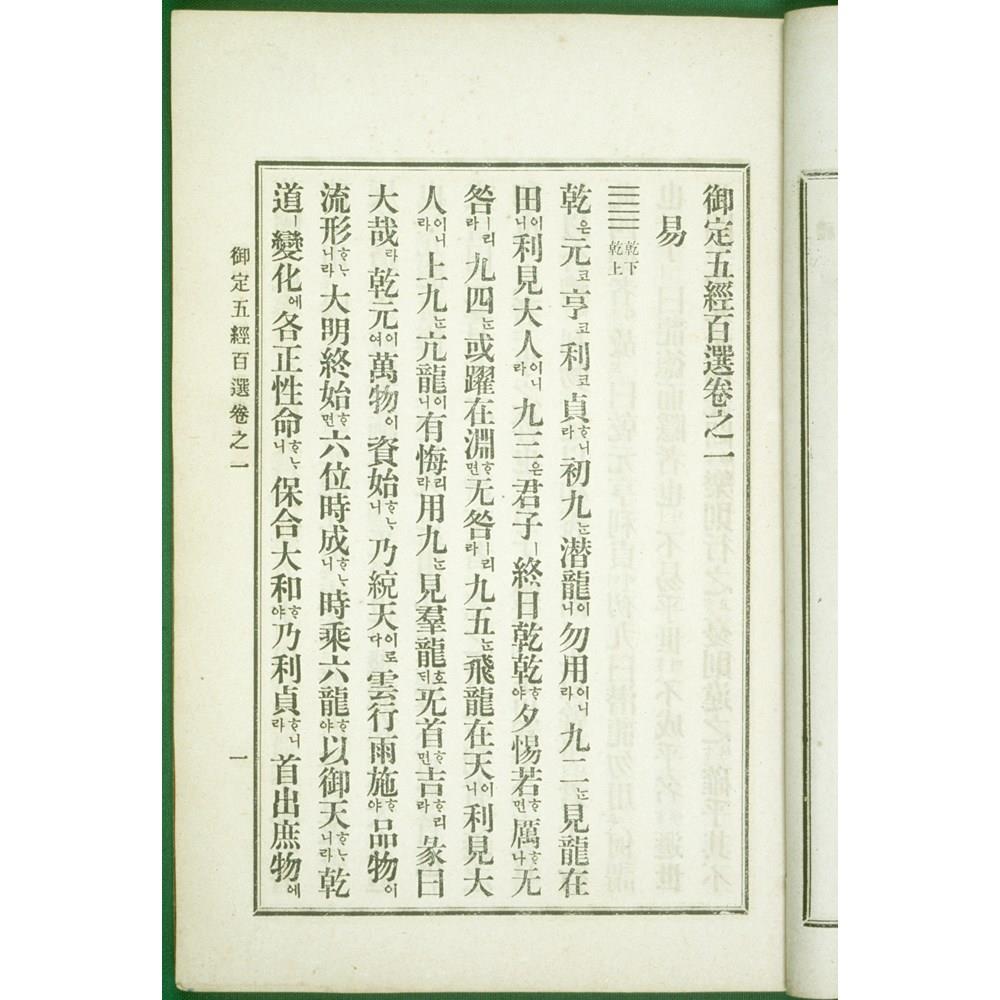 御定五經百選卷之一
易
☰☰ 乾下 乾上
乾은元코亨코利코貞ᄒᆞ니라初九ᄂᆞᆫ潜龍이니勿用이니라九二ᄂᆞᆫ見龍在
田이니利見大人이니라九三은君子ㅣ終日乾乾ᄒᆞ야夕惕若ᄒᆞ면厲ᄒᆞ나无
咎ㅣ리라九四ᄂᆞᆫ或躍在淵ᄒᆞ면无咎ㅣ리라九五ᄂᆞᆫ飛龍在天이니利見大
人이니라上九ᄂᆞᆫ亢龍이니有悔리라用九ᄂᆞᆫ見羣龍호ᄃᆡ无首ᄒᆞ면吉ᄒᆞ리라彖曰
大哉라乾元이여萬物이資始ᄒᆞᄂᆞ니乃統天이로다雲行雨施ᄒᆞ야品物이
流形ᄒᆞᄂᆞ니라大明終始ᄒᆞ면六位時成ᄒᆞᄂᆞ니時乘六龍ᄒᆞ야以御天ᄒᆞᄂᆞ니라乾
道ㅣ變化에各正性命ᄒᆞᄂᆞ니保合大和ᄒᆞ야乃利貞ᄒᆞ니라首出庶物에
御定五經百選卷之一
一